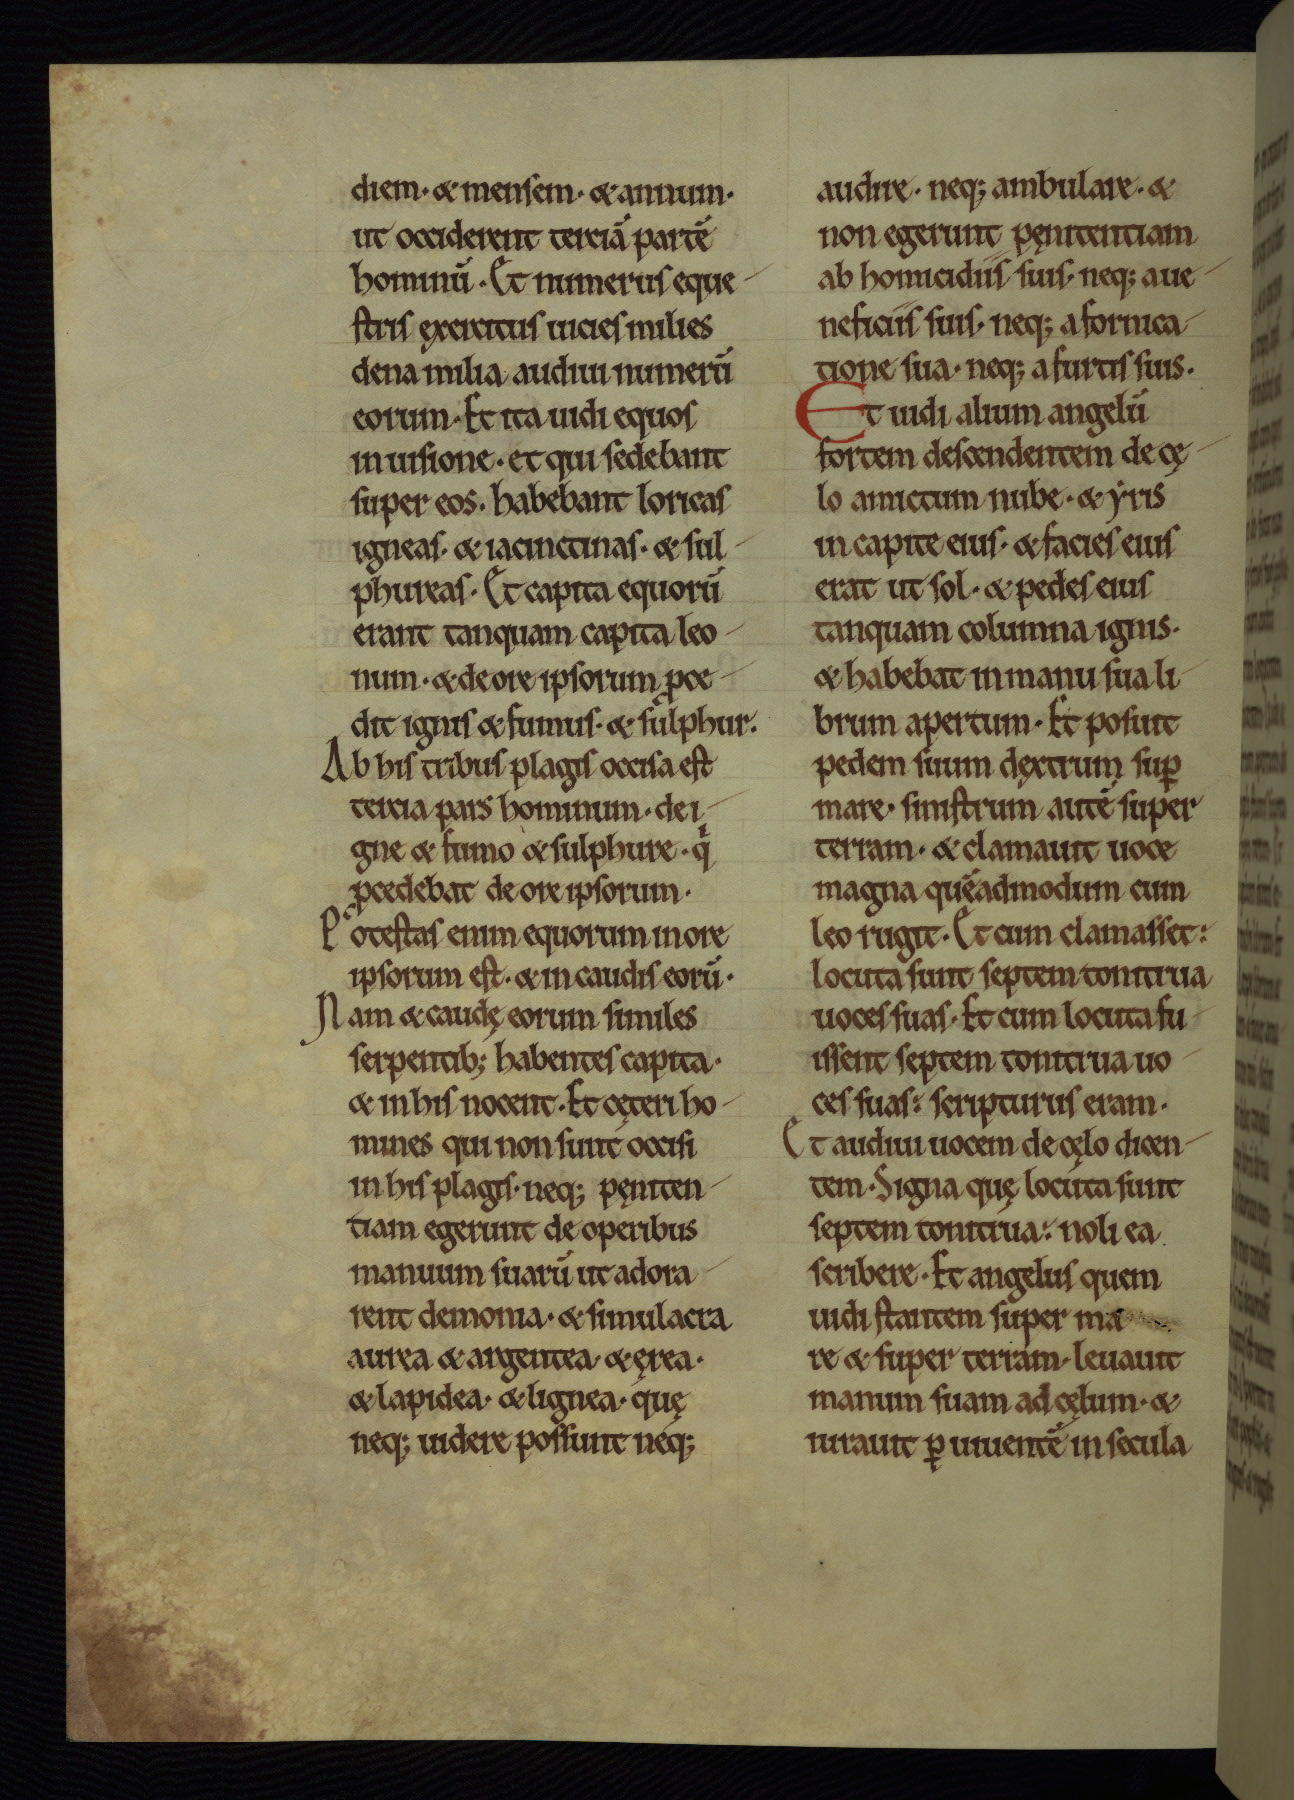 diem· & mensem· & annum·
ut occiderent terciā partē
hominū· Et numerus eque
stris ęxercitus uicies milies
dena milia audiui numerū
eorum· Et ita uidi equos
in uisione· et qui sedebant
super eos· habebant loricas
igneas· & iacinctinas· & sul
phureas· Et capita equorū
erant tanquam capita leo
num· & de ore ipsorum ꝓce
dit ignis & fumus· & sulphur·
Ab his tribus plagis occisa est
tercia pars hominum· de i
gne & fumo & sulphure· qͥ
ꝓcedebat de ore ipsorum·
Potestas enim equorum in ore
ipsorum est· & in caudis eorū·
Nam & caudę eorum similes
serpentib; habentes capita·
& in his nocent· Et cęteri ho
mines qui non sunt occisi
in his plagis· neq; pęniten
tiam egerunt de operibus
manuum suarū ut adora
rent demonia· & simulacra
aurea & argentea· & ęrea·
& lapidea· & lignea· quę
neq; uidere possunt neq;
audire· neq; ambulare· &
non egerunt pęnitentiam
ab homicidiis suis· neq; a ue
neficiis suis· neq; a fornica
tione sua· neq; a furtis suis·
Et uidi alium angelū
fortem descendentem de cę
lo amictum nube· & yris
in capite eius· & facies eius
erat ut sol· & pedes eius
tanquam columna ignis·
& habebat in manu sua li
brum apertum· Et posuit
pedem suum dęxtrum suꝑ
mare· sinistrum autē super
terram· & clamauit uoce
magna quēadmodum cum
leo rugit· Et cum clamasset:
locuta sunt septem tonitrua
uoces suas· Et cum locuta fu
issent septem tonitrua uo
ces suas: scripturus eram·
Et audiui uocem de cęlo dicen
tem· Signa quę locuta sunt
septem tonitrua: noli ea
scribere· Et angelus quem
uidi stantem super ma
re & super terram· leuauit
manum suam ad cęlum· &
iurauit ꝑ uiuentē in secula